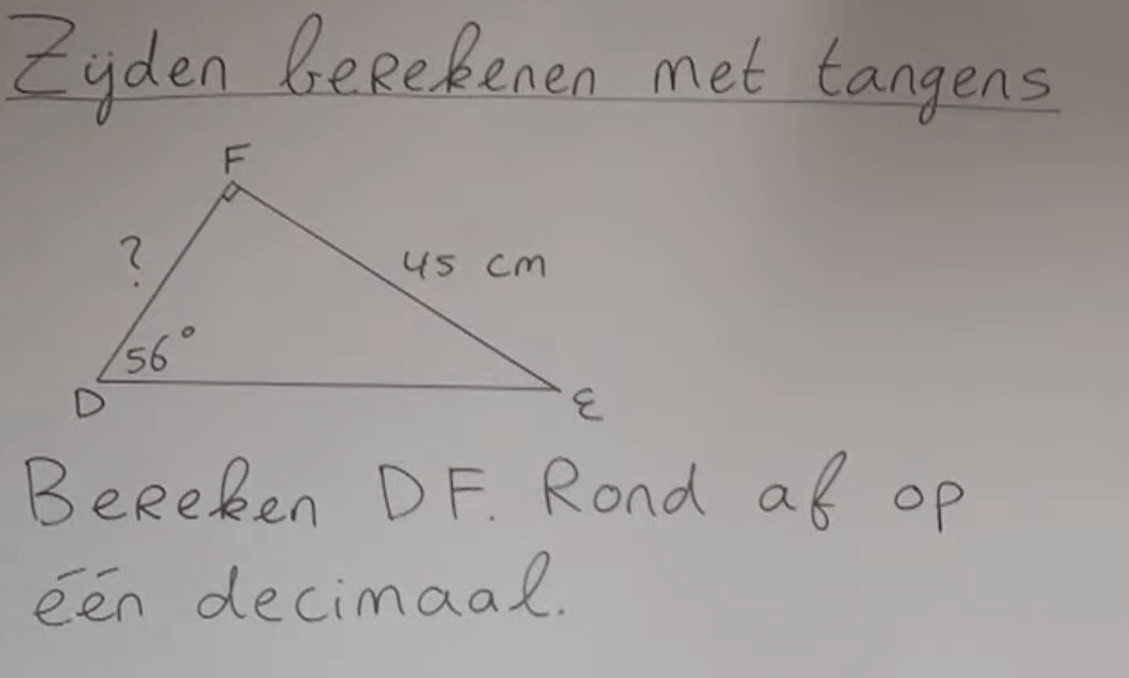 Zijden berekenen met tangens
F
?
45 cm
56°
D
E
Bereken DF. Rond af op
één decimaal.